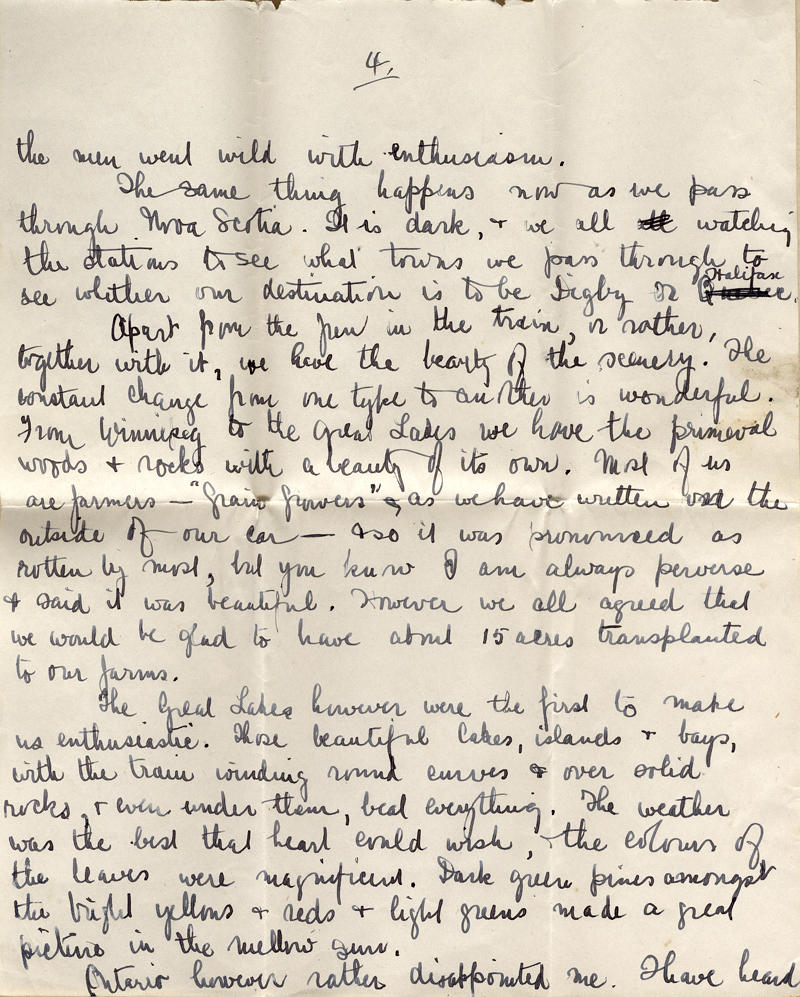 4.
the men went wild with enthusiasm.
The same thing happens now as we pass
through Nova Scotia. It is dark, & we all watching
the stations to see what towns we pass through to
Halifax
see whether our destination is to be Digby or Quebec.
Apart from the fun in the train, or rather,
together with it, we have the beauty of the scenery. The
constant change from one type to another is wonderful.
From Winnipeg to the Great Lakes we have the primeval
woods & rocks with a beauty of its own. Most of us
are farmers — "Grain Growers" as we have written on the
outside of our car — & so it was pronounced as
rotten by most, but you know I am always perverse
& said it was beautiful. However we all agreed that
we would be glad to have about 15 acres transplanted
to our farms.
The Great Lakes however were the first to make
us enthusiastic. Those beautiful Lakes, islands & bays,
with the train winding round curves & over solid
rocks, & even under them, beat everything. The weather
was the best that heart could wish, & the colours of
the leaves were magnificent. Dark green pines amongst
the bright yellows & reds & light greens made a great
picture in the mellow sun.
Ontario however rather disappointed me. I have heard